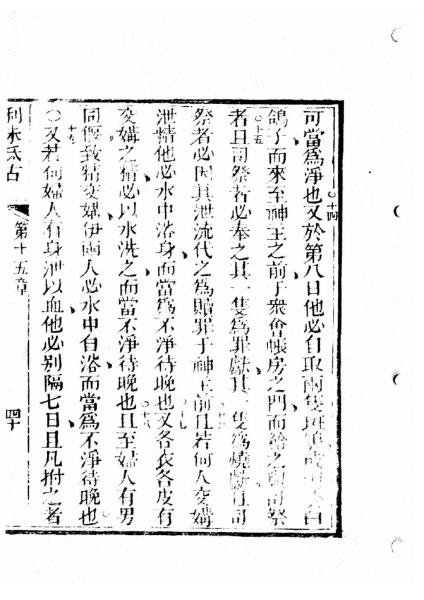 可當爲淨也又於第八日他必自取兩隻斑鳩或
十四
鴿子而來至神王之前于眾會帳房之門而給之與司祭
十五
者且司祭者必奉之其一隻爲罪獻其一隻爲燒獻且司
祭者必因其泄流代之爲贖罪于神王前且若何人交媾
泄精他必水中浴身而當爲不淨待晚也又各衣各皮有
交媾之精必以水洗之而當不淨待晚也且至婦人有男
十八
同偃致精交媾伊兩人必水中自浴而當爲不淨待晚也
十九
○又若何婦人有身泄以血他必别隔七日且凡拊之者
利未氏古
第十五章
四十